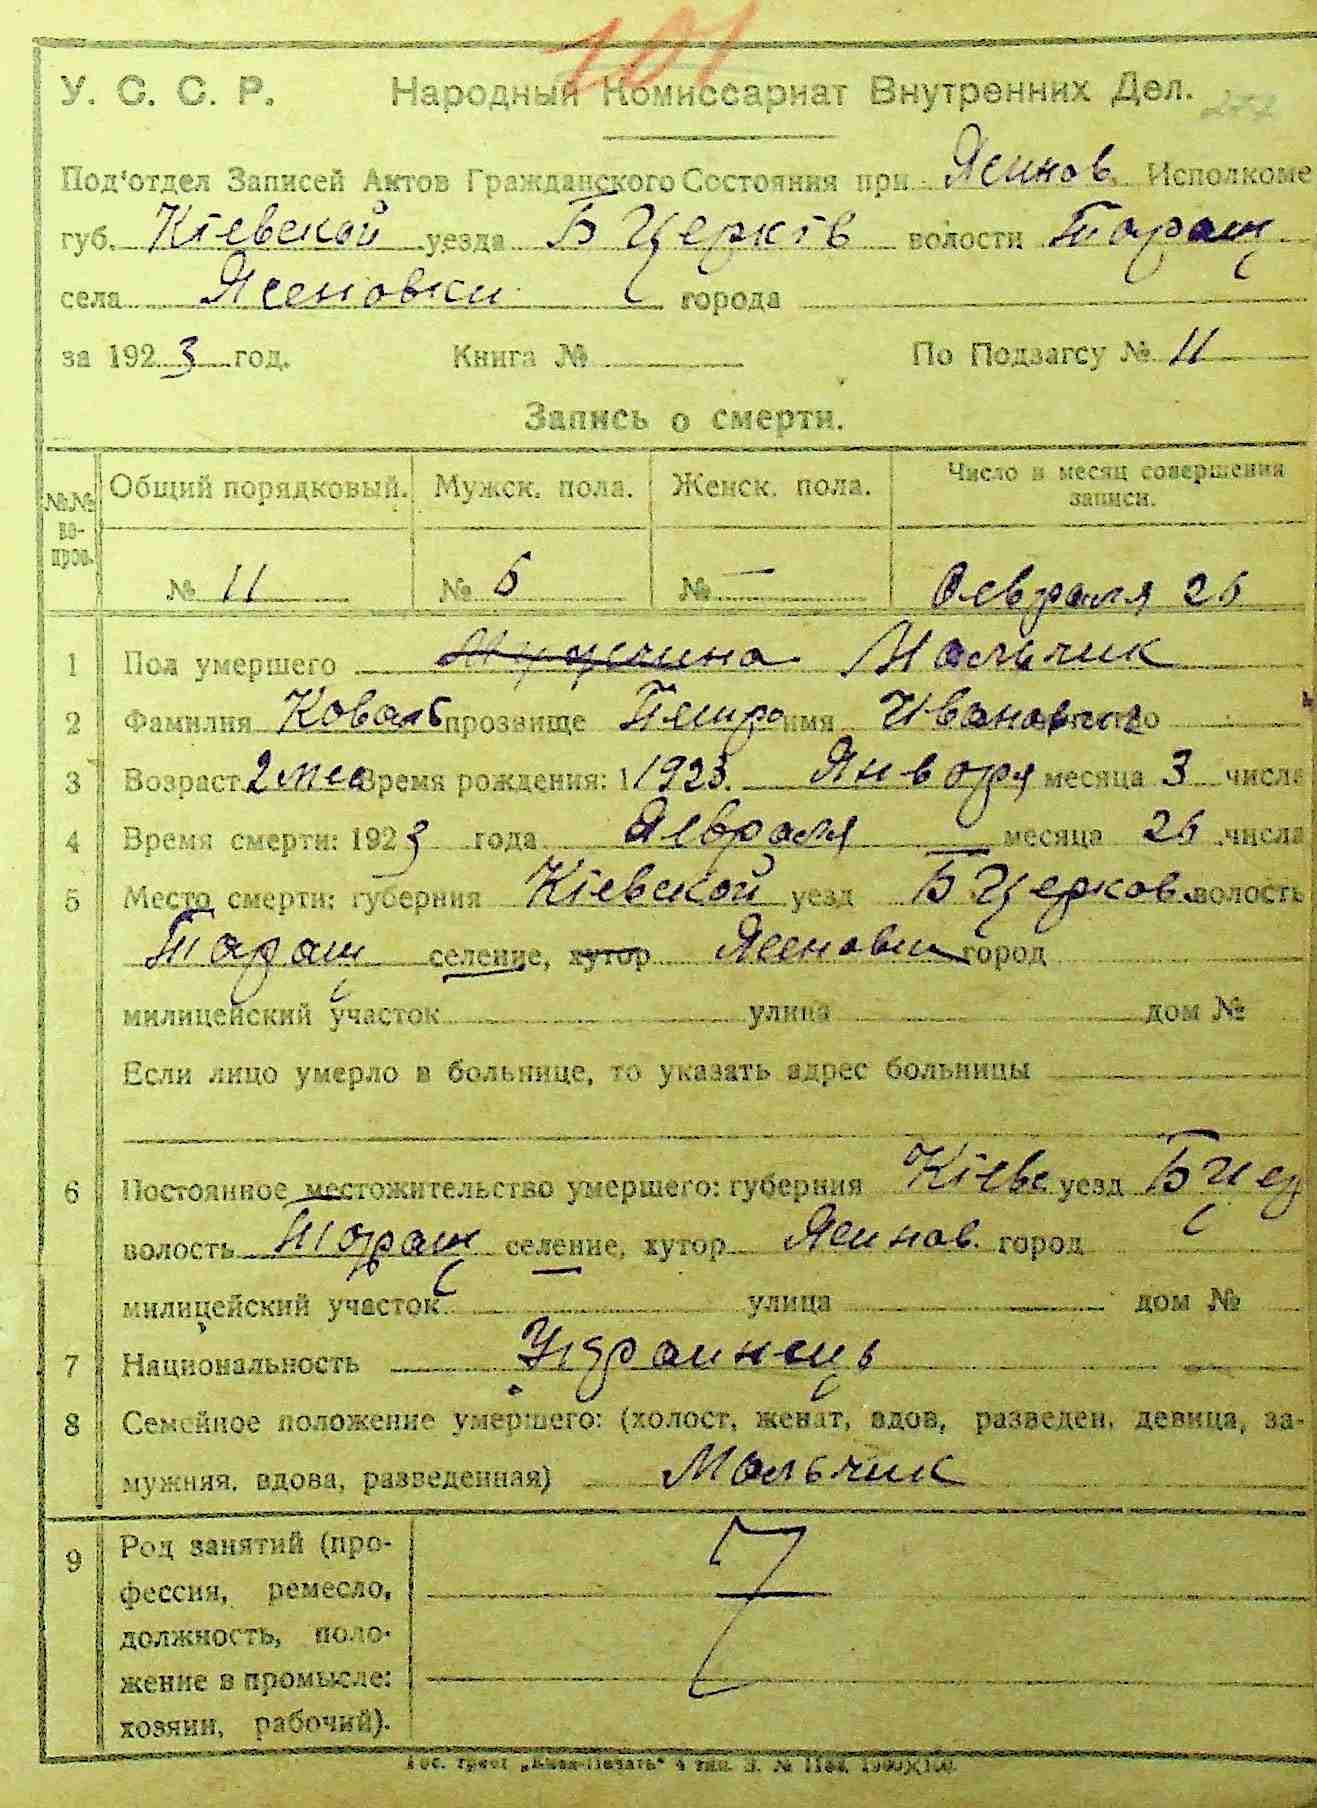 101
У. С. С. Р. Народный Комиссариат Внутренних Дел. 277
Под‘отдел Записей Актов Гражданского Состояния при Ясинов. Исполкоме
губ. Кіевской уезда Б Церків волости Таращ
села Ясеновки города
за 1923 год. Книга № По Подзагсу № 11
Запись о смерти.
№№ во-пров. Общий порядковый. Мужск. пола. Женск. пола. Число и месяц совершения записи.
№ 11 № 6 № — Февраля 26
1 Пол умершего Мужчина Мальчик
2 Фамилия Коваль прозвище Петро имя Иванович
3 Возраст 2 мес Время рождения: 1 1923. Января месяца 3 числа
4 Время смерти: 1923 года Февраля месяца 26 числа
5 Место смерти: губерния Кіевской уезд Б Церков. волость
Таращ селение, хутор Ясеновки город
милицейский участок улица дом №
Если лицо умерло в больнице, то указать адрес больницы
6 Постоянное местожительство умершего: губерния Кіевс уезд Б Цер
волость Таращ селение, хутор Ясинов. город
милицейский участок улица дом №
7 Национальность Украинець
8 Семейное положение умершего: (холост, женат, вдов, разведен, девица, за-
мужняя, вдова, разведенная) Мальчик
9 Род занятий (про-
фессия, ремесло,
должность, поло-
жение в промысле:
хозяин, рабочий).